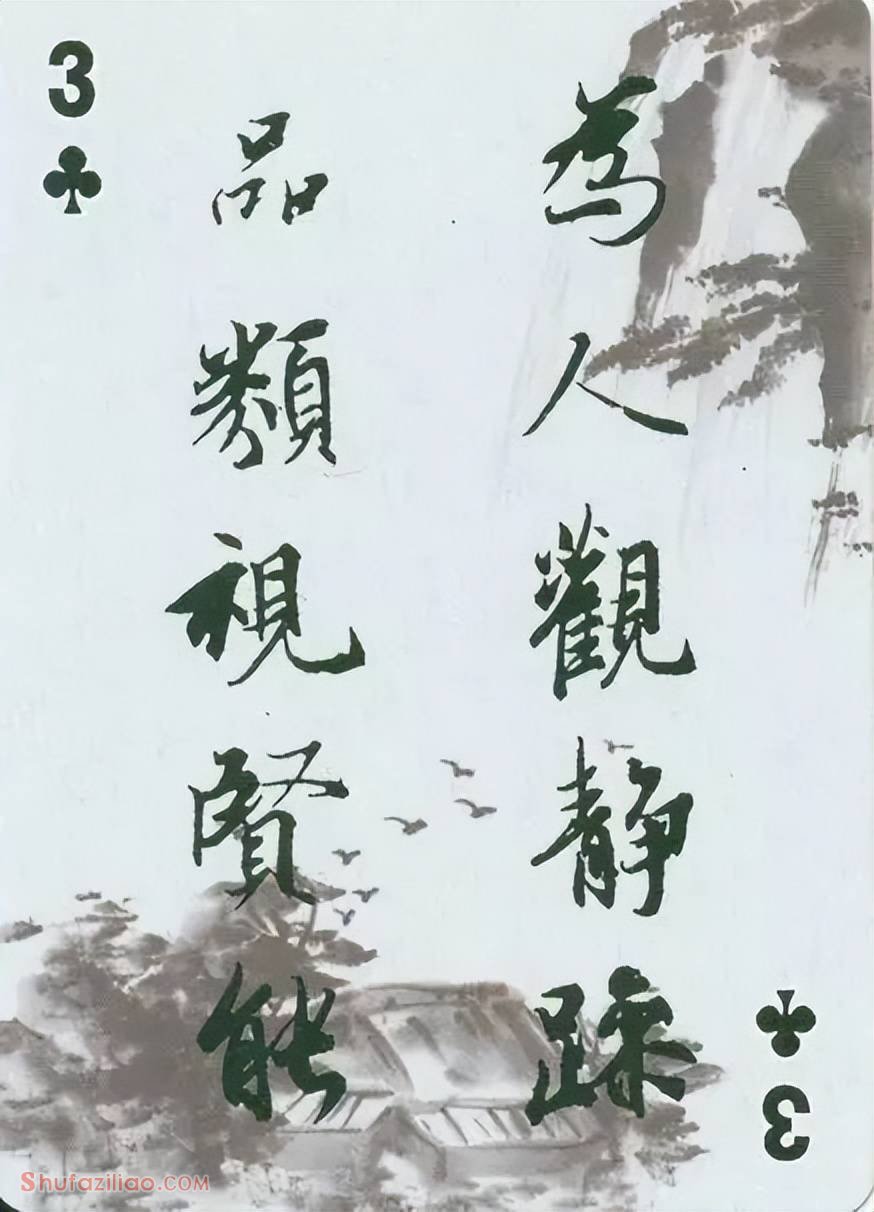 3
為人觀静躁
品類視賢能
3
Shufaziliao.com